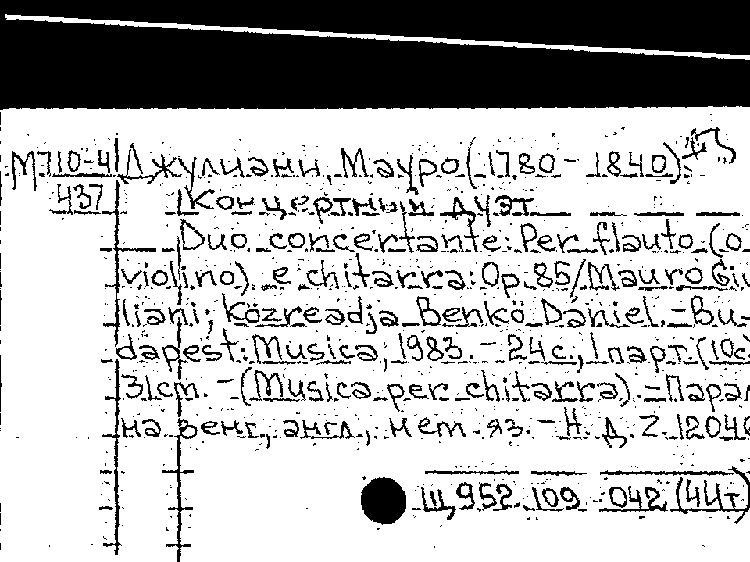 М710-4 Джулиани, Мауро (1780-1840)
437 Концертный дуэт
Duo concertante: Per flauto (o
violino) e chitarra: Op. 85/Mauro Giu-
liani; Közreadja Benkö Dániel. - Bu-
dapest: Musica, 1983. - 24с., 1 парт. (10с
31cm. - (Musica per chitarra). - Парал
на венг., англ., нем. яз. - Н. д. Z. 12046
Щ 952.109 - 042 (4Ит)